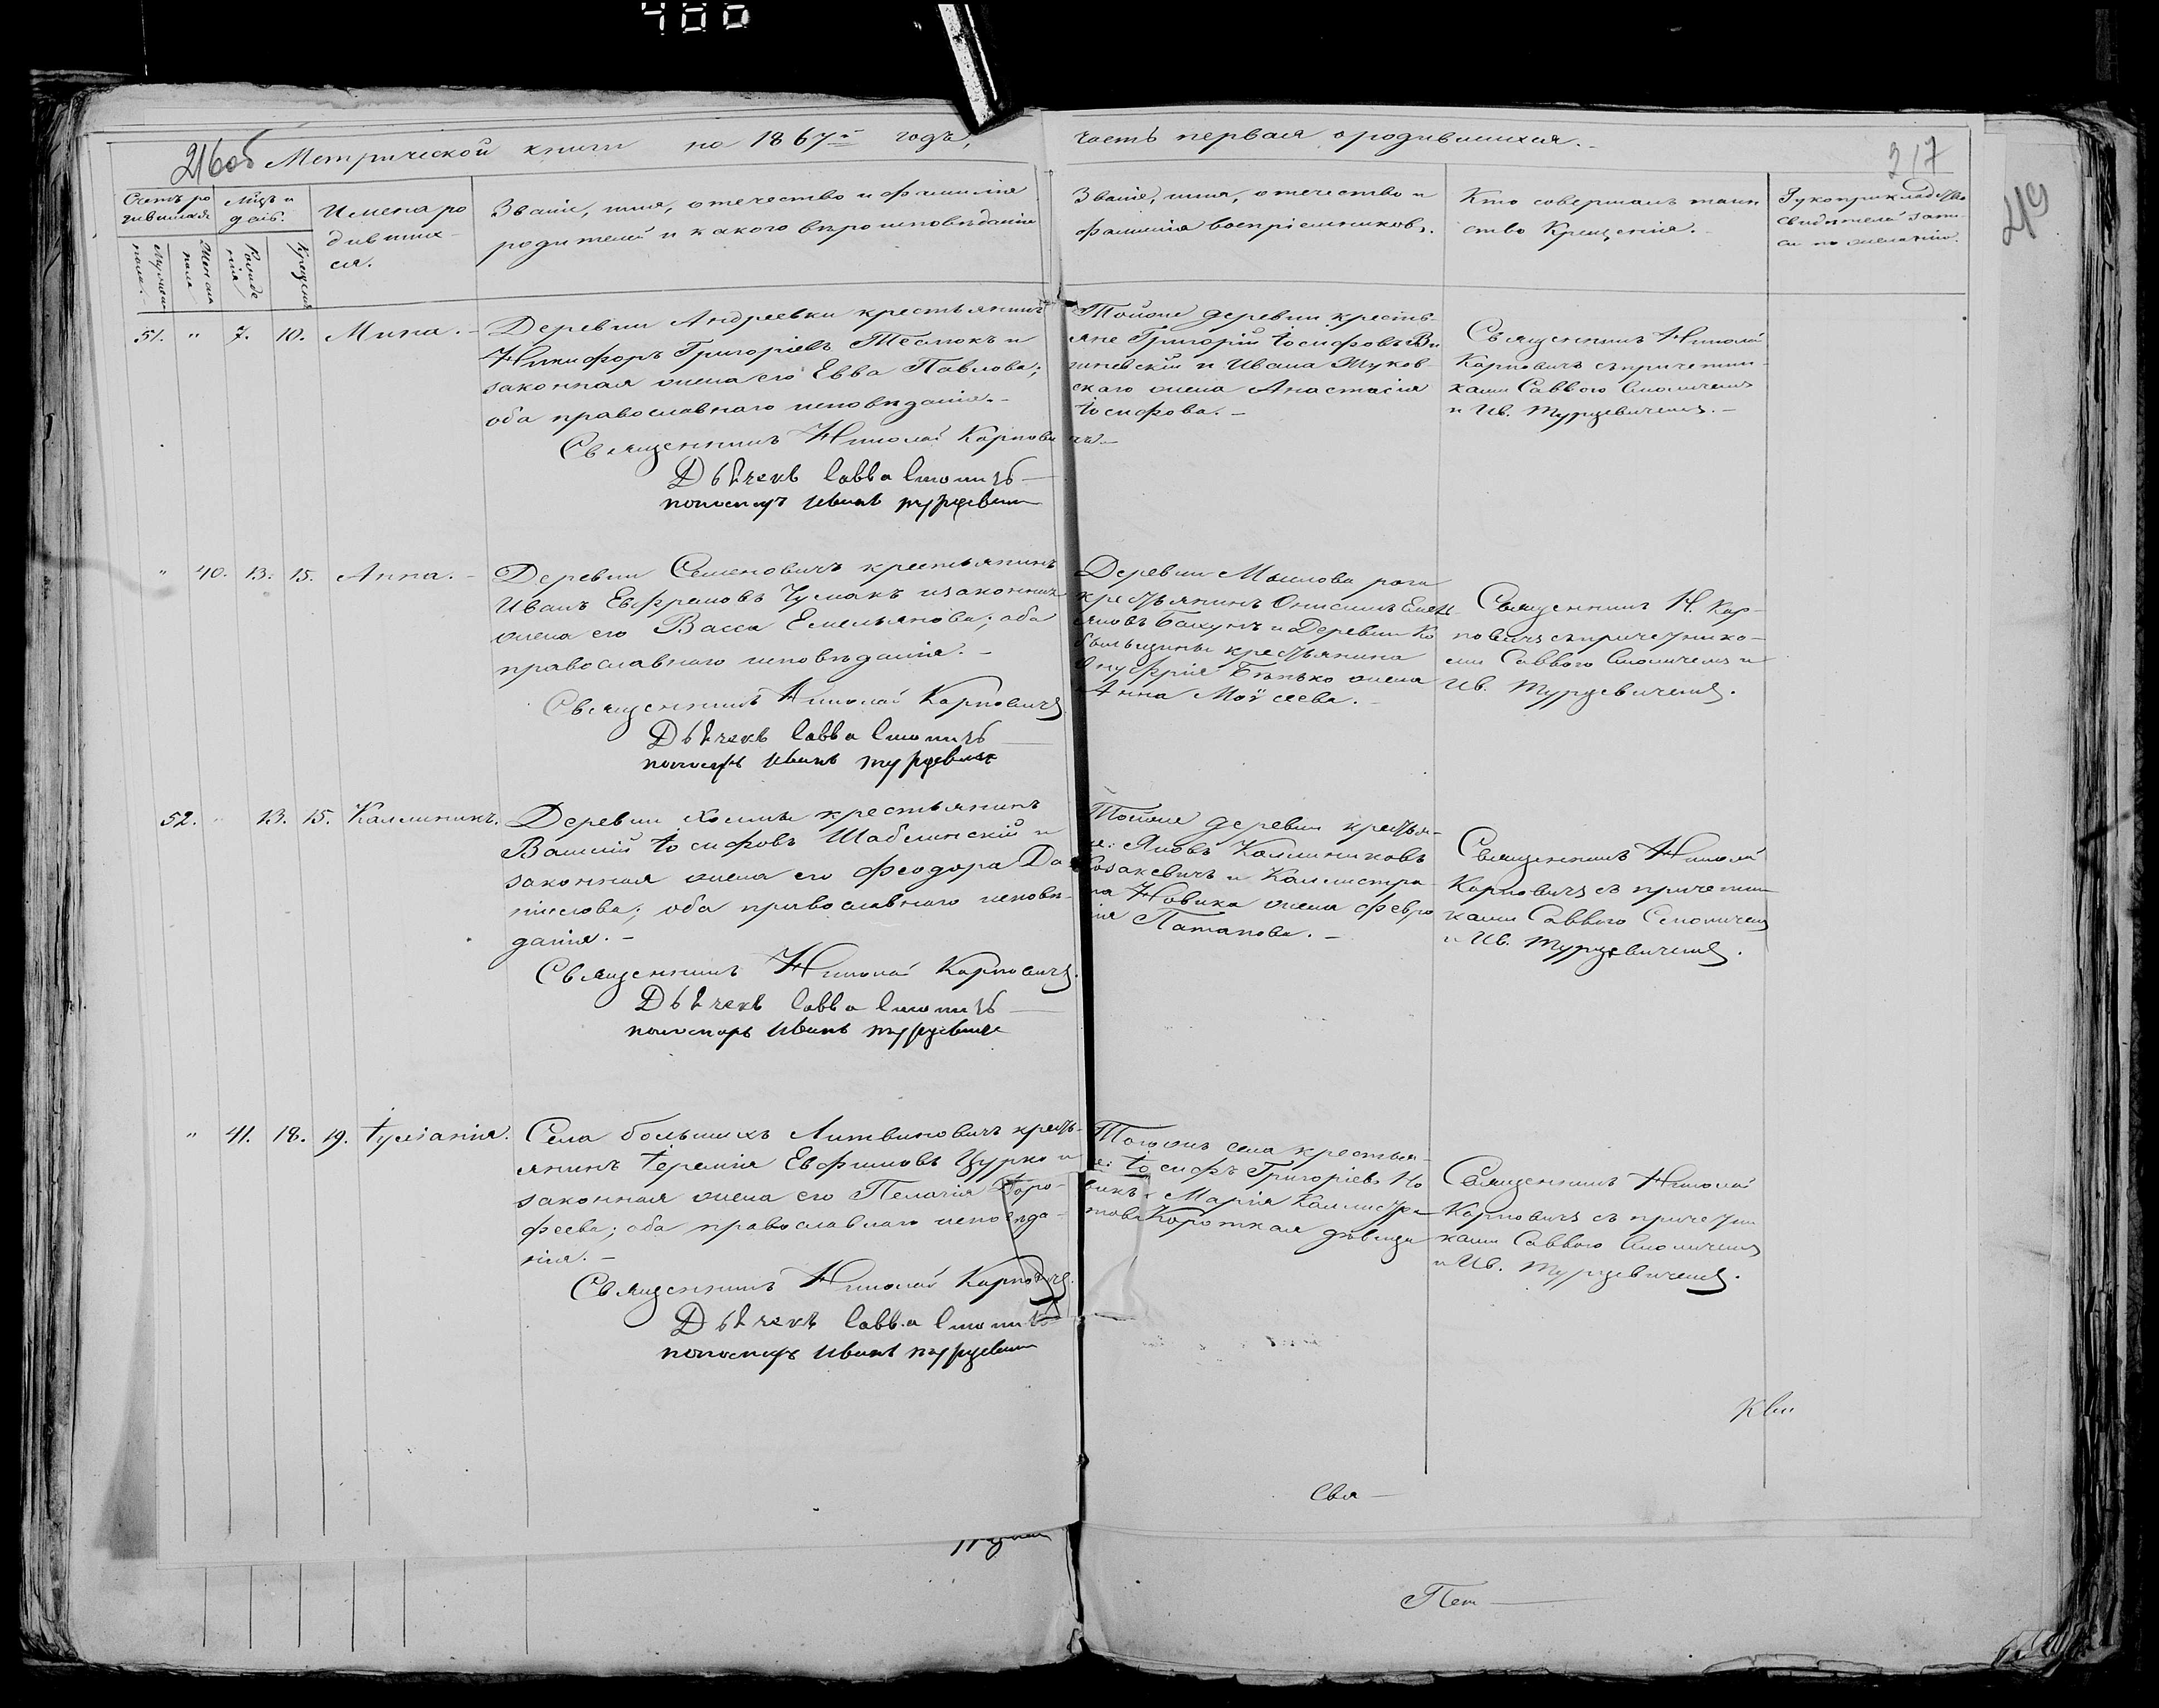 400
216об Метрической книги на 1867й годъ,
часть первая о родившихся.
217
49
Счетъ ро
дившихся
Мѣсяцъ и
день.
Имена ро
дивших-
ся.
Званіе, имя, отчество и фамилія
родителей и какого вѣроисповѣданія
Званіе, имя, отчество и
фамилія воспріемниковъ.
Кто совершалъ таин
ство Крещенія.
Рукоприкладство
свидѣтелей запи-
си по желанію.
Мужеска
пола.
Женска
пола
Рожде
нія
Крещенія
51. " 7. 10. Мина. -
Деревни Андреевки крестьянинъ
Никифоръ Григоріевъ Теслюкъ и
законная жена его Евва Павлова;
оба православнаго исповѣданія. -
Священникъ Николай Карпови
чъ. -
Дьячекъ Савва Смоличъ
пономарь Иванъ Турцевич
Тойже деревни кресть-
яне Григорій Іосифовъ Ви
шневскій и Ивана Жуков-
скаго жена Анастасія
Іосифова. -
Священникъ Николай
Карповичъ съ причетни-
ками Саввою Смоличемъ
и Ив. Турцевичемъ. -
" 40. 13. 15. Анна. -
Деревни Семеновичъ крестьянинъ
Иванъ Евфремовъ Чумакъ и законная
жена его Васса Емельянова; оба
православнаго исповѣданія. -
Священникъ Николай Карповичъ
Дьячекъ Савва Смоличъ
пономарь Иванъ Турцевич
Деревни рога
крестьянинъ Онисимъ Емел-
яновъ Бакунъ и Деревни Ко
быльщины крестьянина
Онуфрія Бѣлько жена
Анна Моѵсеева. -
Священникъ Н. Кар-
повичъ съ причетнико-
ми Саввою Смоличемъ и
Ив. Турцевичемъ.
52. " 13. 15. Каллиникъ.
Деревни Холмы крестьянинъ
Василій Іосифовъ Шаблинскій и
законная жена его Феодора Да
ніилова; оба православнаго исповѣ-
данія. -
Священникъ Николай Карповичъ.
Дьячекъ Савва Смоличъ
пономарь Иванъ Турцевич
Тойже деревни крестья-
не: Яковъ Каллиниковъ
Козакевичъ и Каллистра-
та Новика жена Февро
нія Патапова. -
Священникъ Николай
Карповичъ съ причетни
ками Саввою Смоличемъ
и Ив. Турцевичемъ.
" 41. 18. 19. Іуліанія.
Села большихъ Литвиновичъ кресть-
янинъ Іеремія Евфимовъ Цурко и
законная жена его Пелагія Доро-
феева; оба православнаго исповѣда-
нія. -
Священникъ Николай Карповичъ.
Дьячекъ Савва Смоличъ
пономарь Иванъ Турцевич
Тогожъ села крестья-
не: Іосифъ Григоріевъ Но
викъ и Марія Каллистра-
това Короткая дѣвица
Священникъ Николай
Карповичъ съ причетни
ками Саввою Смоличемъ
и Ив. Турцевичемъ.
Свя
Пет